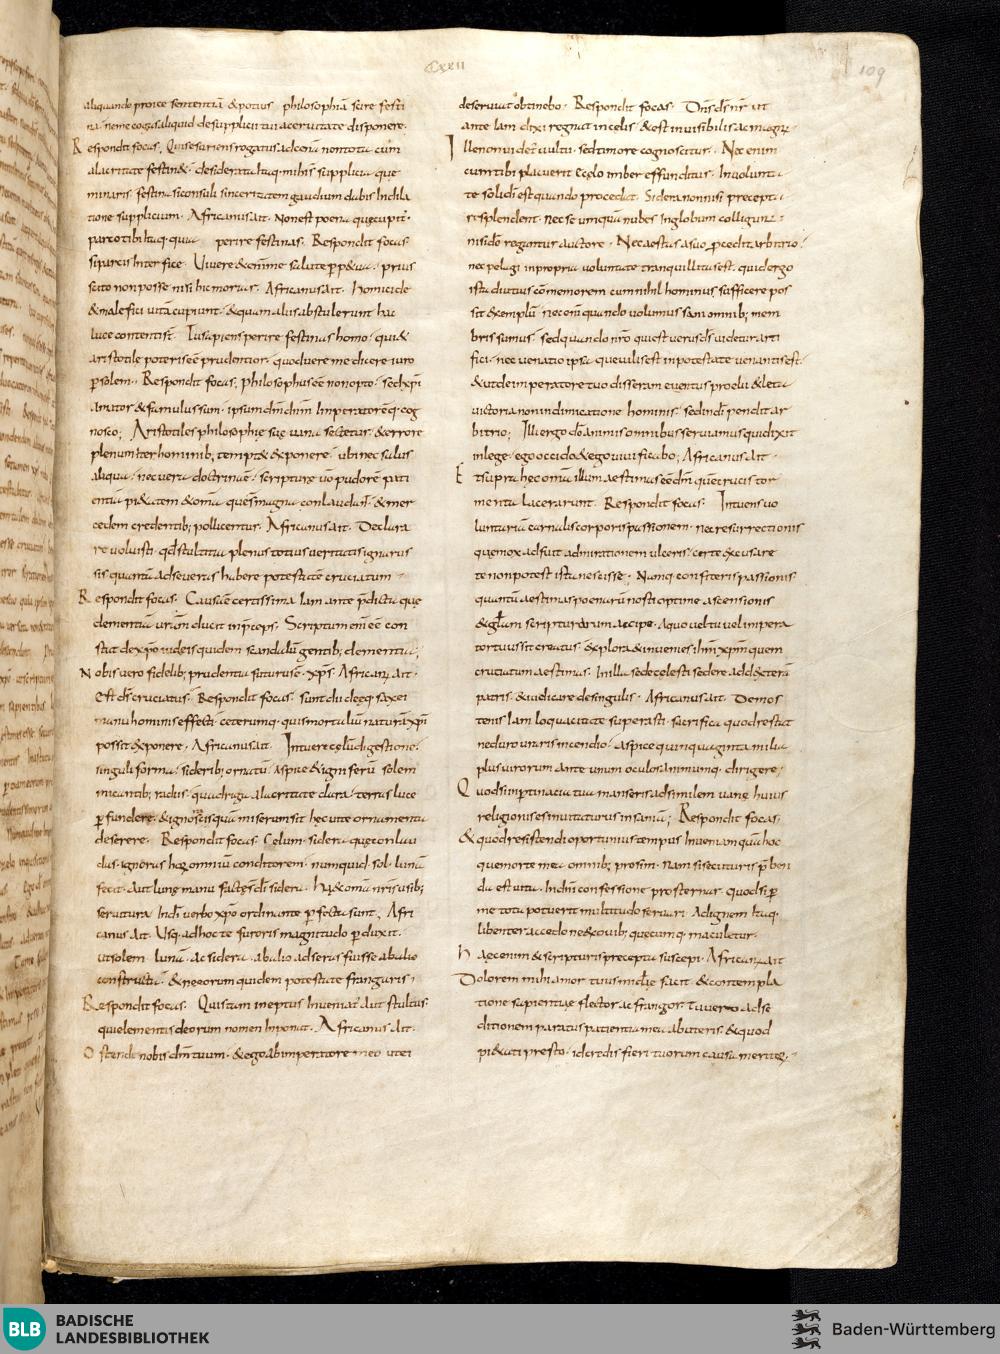 cxxii
109
aliquando proice sententiā & potius philosophiā scire festi
na. ne me cogas aliquid de supplicii tui acervitate disponere.
Respondit focas. Qui esuriens rogatus ad cenā non tota cum
alacritate festin&. desiderata itaq: mihi supplicia que
minaris. festina si consuli sinceritatem gaudium dabis In dila
tione supplicium. Africanus ait. Non est poena quę cupit.
parco tibi itaq: quia perire festinas. Respondit focas.
si parcis Interfice. Vivere & enīme salute pp&ua. prius
scito non posse nisi hic moriar. Africanus ait. Homicide
& malefici uitā cupiunt. & quam aliis abstulerunt hac
luce contentis. Tu sapiens perire festinas homo. qui &
aristotile poteris eē prudentior. quod uere me dicere iuro
p solem. Respondit focas. philosophus eē non opto. sed xpi
amator & famulus sum. ipsum dm dim Imperatorēq: cog
nosco; Aristotiles philosophie suę uana sectetur. & errore
plenum Iter hominib; tempt& exponere. ubi nec salus
aliqua. nec uera doctrina ē. scripture uō pudore pati
entia pi&atem & omā quę sī magna conlaudat. & mer
cedem credentib; pollicentur. Africanus ait. Declara
re voluisti. qd stultitia plenus totius ueritatis ignarus
sis quantā adseveras habere potestatē cruciatum
Respondit focas. Causa ē certissima Iam ante pdicta quę
clementiā uram ducit in pceps. Scriptum enī ē con
stat de xpo iudeis quidem scandalū gentib; clementia;
Nobis uero fidelib; prudentia futurus ē. xps. Africanz ait.
Est ds cruciatus. Respondit focas. sunt dii cleęq: saxei
manu hominis effecti. ceterumq: quis mortaliū naturā xpi
possit exponere. Africanus ait. Intuere cęlū digestione.
singuli forma. siderib; ornatū. aspice & ignifer[ū] solem
micantib; radiis. quadriga alacritate clara. terras luce
pfundere. & ignoscis quā miserum sit hec uite ornamenta
deserere. Respondit focas. Cęlum. sidera quę conlau
das. ignoras horz omniū conditorem. numquid sol. lunā
fecit. Aut lunę manu factę s̄ di sidera. Hęc & omā nris usib;
seruitura In di verbo xpo ordinante pfecta sunt. Afri
canus ait. Usq: ad hoc te furoris magnitudo pduxit.
ut solem. lunā. ac sidera. ab alio adseras fuisse ab alio
constructa. & neęorum quidem potestate frangaris.
Respondit focas. Quis tam ineptus Inueniat Aut stultus
qui elementis deorum nomen Inponat. Africanus ait.
Ostende nobis dm tuum. & ego ab imperatore meo ut ei
deseruiat obtinebo. Respondit focas. Dns ds nr ut
ante Iam dixi regnat in celis & est inuisibilis ac magnz.
Ille non uidet uultu. sed timore cognoscitur. Nec enim
cum tibi placuerit E cęlo imber effunditur. Inuolunta
te solidi est quando procedat. Sidera non nisi precepta
resplendent. Nec se umquā nubes In globum colligunz.
nisi dō regantur auctore. Nec aestas a suo pcedit arbitrio.
nec pelagi in propria voluntate tranquillitas est. quid ergo
ista diutius cōmemorem cum nihil hominus sufficere pos
sit exemplū. nec om quando volumus sani omnib; mem
bris sumus. sed quando nro qui est uerus ds uidetur arti
fici. nec venatio ipsa. que uilis est in potestate uenantis est.
& ut de imperatore tuo disseram euentus proelii & leta
uictoria non in dimicatione hominis. sed in di pendit ar
bitrio; Illi ergo dō animis omnibus seruiamus qui dixit
in lege. ego occido & ego uiuificabo; Africanus ait.
Et supra hęc omā illum aestimas eē dm quę cruciis tor
menta lacerarunt. Respondit focas. Intuens uo
luntariā carnalis corporis passionem. nec resurrectionis
quę mox adfuit admirationem ulceris. certe excusare
te non potest ista nescisse; Nunq: confiteris passionis
quantū aestimas poenarū nosti optime ascensionis
& glam scripturarum accipe. A quo ueluti vel impera
tor iussit creatus. explora & inuenies ihm xpm quem
cruciatum aestimas. In illa sede cęlesti sedere ad dexterā
patris. & iudicare de singulis. Africanus ait. Demos
tenis Iam loquacitate superasti. sacrifica quod restat
ne duro uraris incendio. aspice quinquaginta milia
plus uirorum ante unum oculos animumq: dirigere;
Quod si in ptinacia tua manseris ad similem uanę huius
religionis es inuitaturus insaniā; Respondit focas.
& quod resistendi oportunius tempus Inueniam quā hoc
que morte mea omnib; prosim. Nam si secuturis pben
da est uita. In dm confessione prosternar. quod si p
me tota potuerit multitudo seruari. Ad ignem Itaq:
libenter accedo ne & ouib; quecumq: maculetur.
Haec enim & scripturis precepta suscepi. Africanz ait
Dolorem mihi amor tuus indicte facit. & contempla
tione sapientiae flector ac frangor. Tu uero ad se
ditionem paratus patientia mea abuteris. & quod
pi&ati presto. id credis fieri tuorum causa meritorz.
BLB BADISCHE
LANDESBIBLIOTHEK
Baden-Württemberg